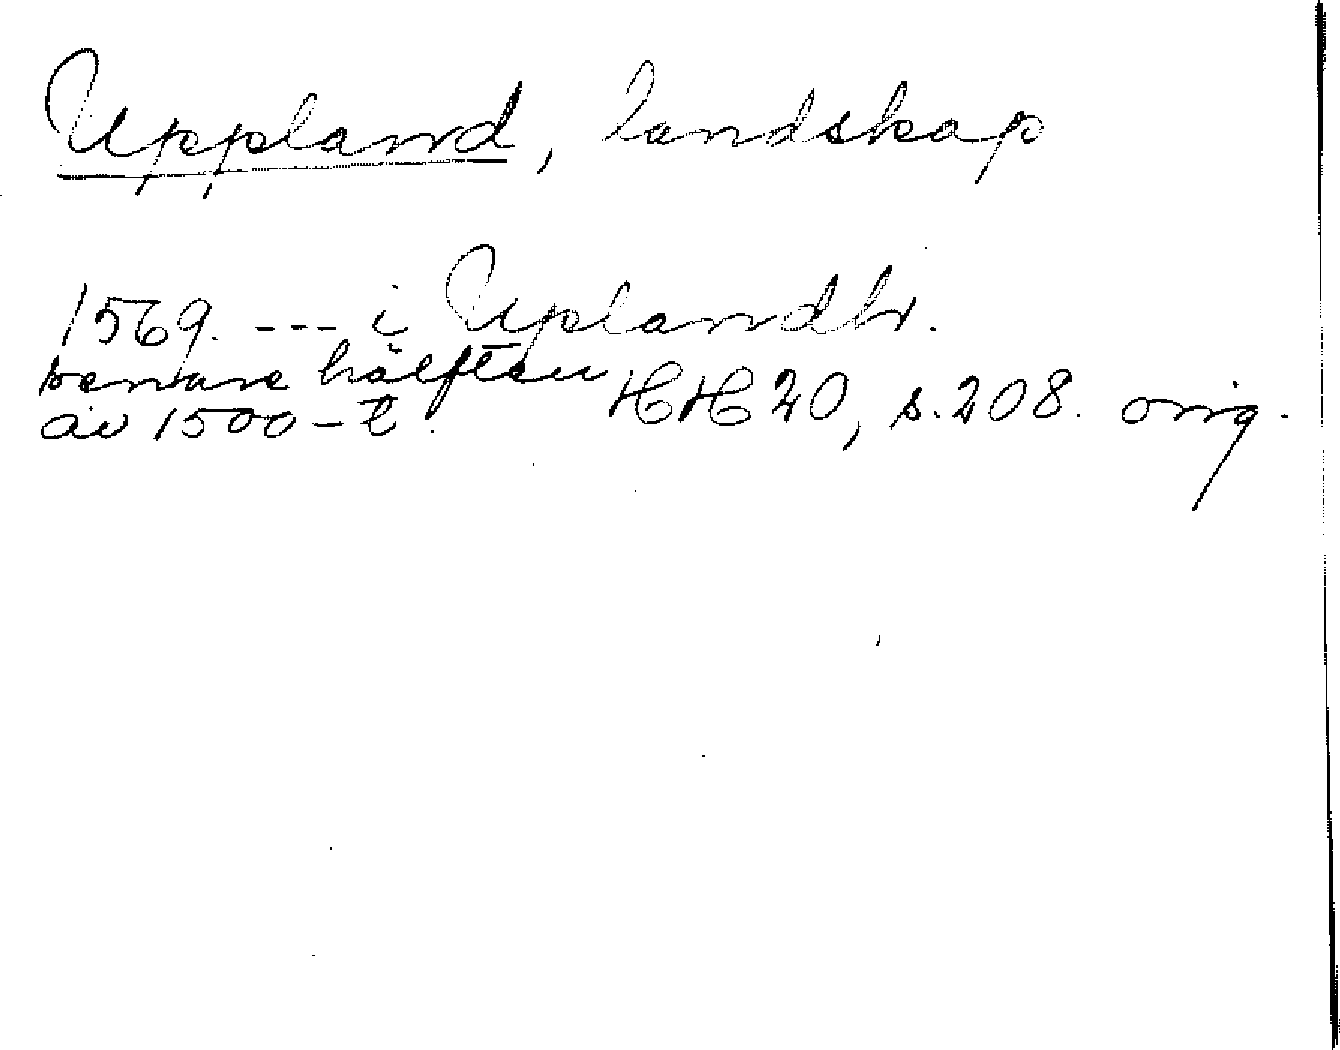 Uppland, landskap
1569. --- i Uplandh.
senare hälften
av 1500-t. HH 20, s. 208. orig.